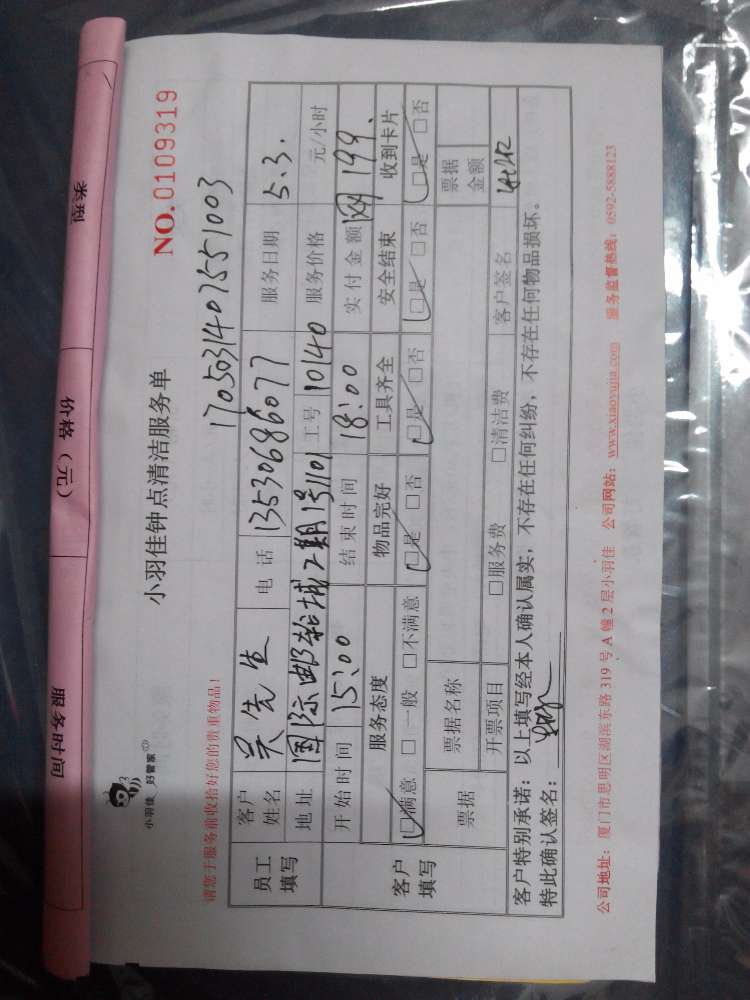 类型
价格（元）
服务时间
小羽佳 好管家
小羽佳钟点清洁服务单
NO.0109319
17050314075551003
请您于服务前收拾好您的贵重物品！
员工填写
客户姓名 吴先生 电话 13530686077 服务日期 5.3.
地址 国际邮轮城2期1号1101 工号 10140 服务价格 元/小时
开始时间 15:00 结束时间 18:00 实付金额 199.
客户填写
服务态度 物品完好 工具齐全 安全结束 收到卡片
□满意 □一般 □不满意 □是 □否 □是 □否 □是 □否 □是 □否
票据 票据名称 票据金额
开票项目 □服务费 □清洁费 客户签名
客户特别承诺：以上填写经本人确认属实，不存在任何纠纷，不存在任何物品损坏。
特此确认签名：
公司地址：厦门市思明区湖滨东路319号A幢2层小羽佳 公司网站：www.xiaoyujia.com 服务监督热线：0592-5888123